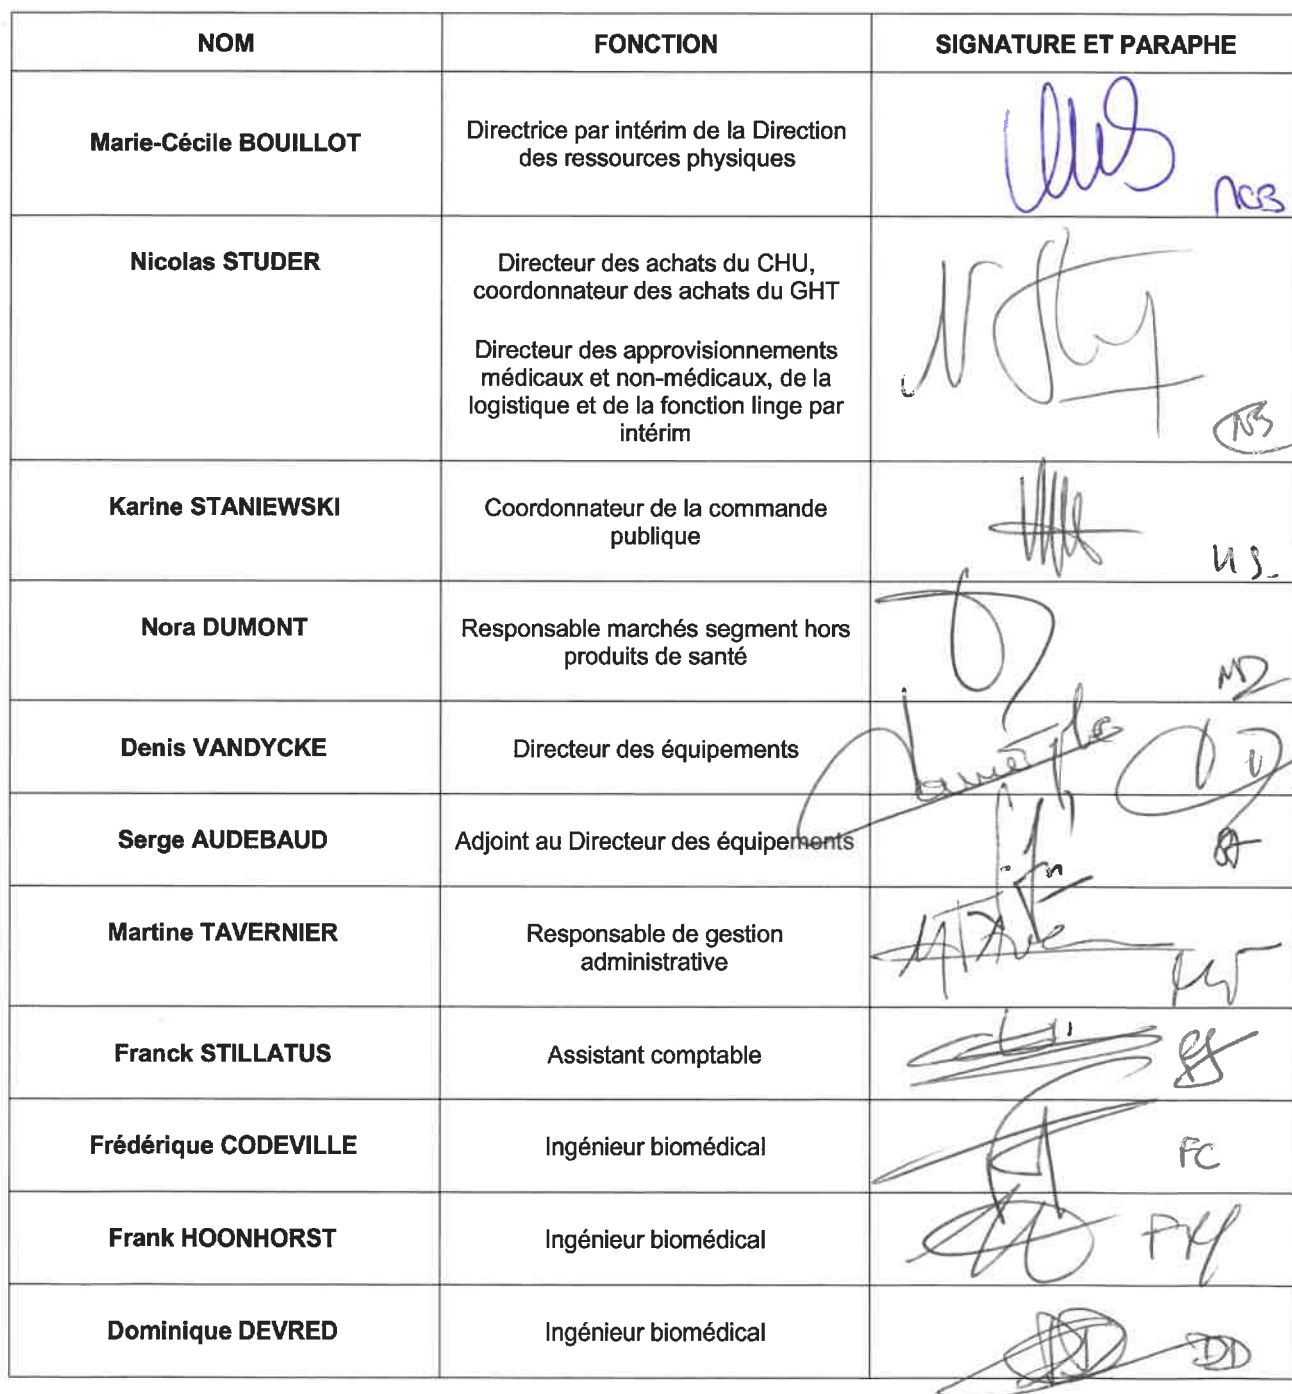 NOM FONCTION SIGNATURE ET PARAPHE
Marie-Cécile BOUILLOT
Directrice par intérim de la Direction
des ressources physiques
MCB
Nicolas STUDER
Directeur des achats du CHU,
coordonnateur des achats du GHT
Directeur des approvisionnements
médicaux et non-médicaux, de la
logistique et de la fonction linge par
intérim
Karine STANIEWSKI
Coordonnateur de la commande
publique
Nora DUMONT
Responsable marchés segment hors
produits de santé
ND
Denis VANDYCKE
Directeur des équipements
Serge AUDEBAUD
Adjoint au Directeur des équipements
Martine TAVERNIER
Responsable de gestion
administrative
Franck STILLATUS
Assistant comptable
Frédérique CODEVILLE
Ingénieur biomédical
FC
Frank HOONHORST
Ingénieur biomédical
Dominique DEVRED
Ingénieur biomédical
DD